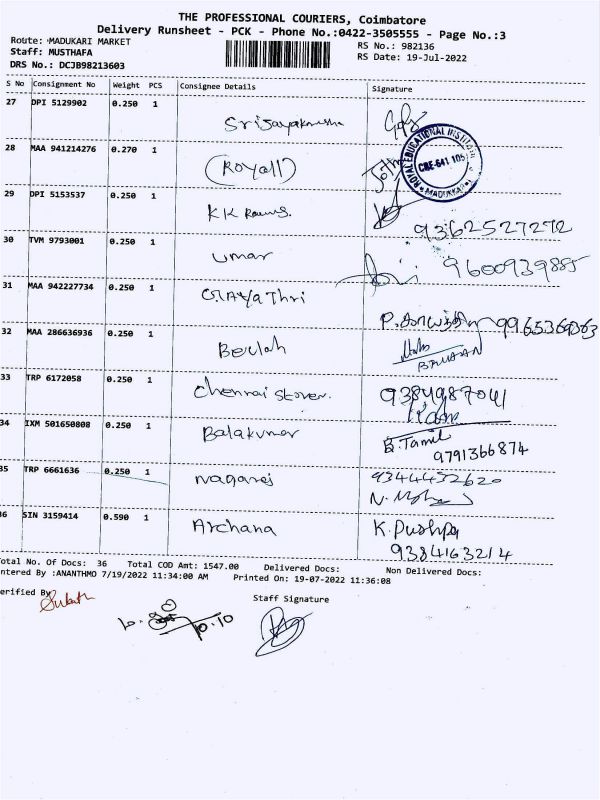 THE PROFESSIONAL COURIERS, Coimbatore
Delivery Runsheet - PCK - Phone No.:0422-3505555 - Page No.:3
Route: MADUKARI MARKET
RS No.: 982136
Staff: MUSTHAFA
RS Date: 19-Jul-2022
DRS No.: DCJB98213603
S No Consignment No Weight PCS Consignee Details Signature
27 DPI 5129902 0.250 1
28 MAA 941214276 0.270 1 (Royall)
ROYAL EDUCATIONAL INSTITUTE
CBE-641 105
MADUKKARAI
29 DPI 5153537 0.250 1 KK
9362527272
30 TVM 9793001 0.250 1 umar 9600939885
31 MAA 942227734 0.250 1 GayaThri
P. காயத்திரி
32 MAA 286636936 0.250 1 Beulah
33 TRP 6172058 0.250 1 Chennai 9384987041
34 IXM 501650808 0.250 1 Balakumar B.Tamil
9791366874
35 TRP 6661636 0.250 1 nagaraj 9344432620
36 SIN 3159414 0.590 1 Archana K. Pushpa
9384163214
Total No. Of Docs: 36 Total COD Amt: 1547.00 Delivered Docs: Non Delivered Docs:
ntered By :ANANTHMO 7/19/2022 11:34:00 AM Printed On: 19-07-2022 11:36:08
erified By
Staff Signature
10.10